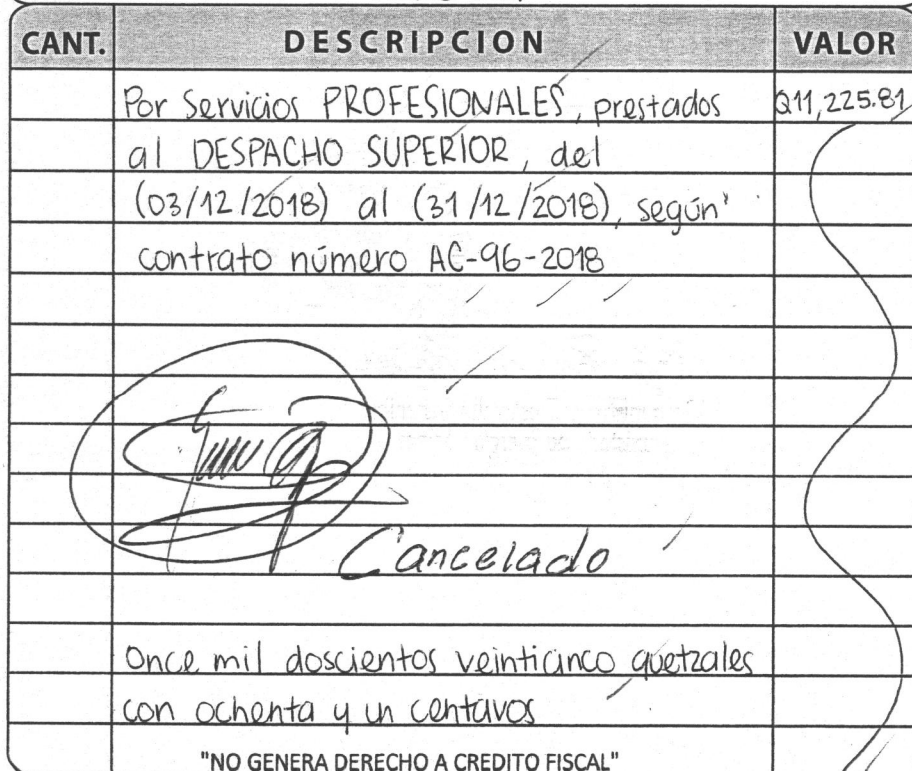 CANT. DESCRIPCION VALOR
Por Servicios PROFESIONALES, prestados Q11,225.81
al DESPACHO SUPERIOR, del
(03/12/2018) al (31/12/2018), según
contrato número AC-96-2018
Cancelado
Once mil doscientos veinticinco quetzales
con ochenta y un centavos
"NO GENERA DERECHO A CREDITO FISCAL"